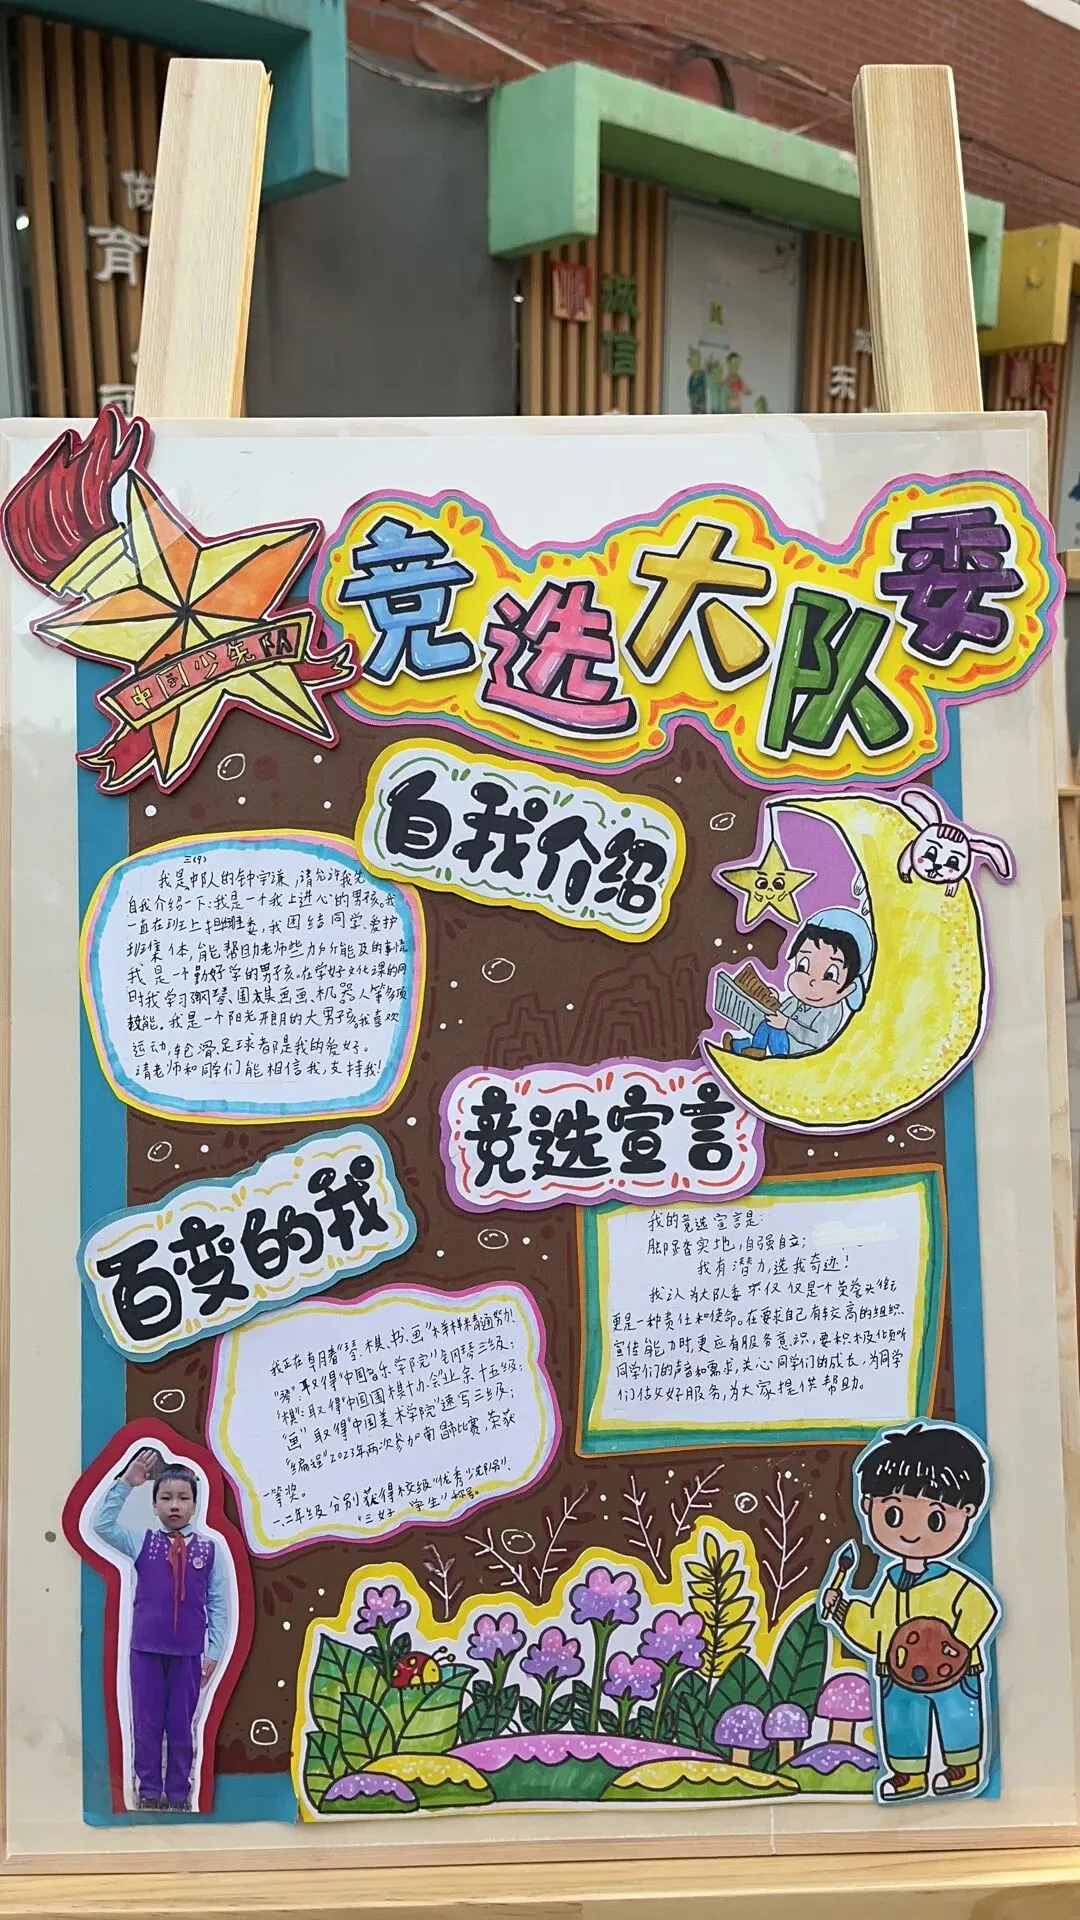 做
育
诚
信
东
中国少先队
竞选大队委
自我介绍
三(9)
我是中队的钟宇谦,请允许我先
自我介绍一下:我是一个我上进心的男孩。我
一直在班上担班委,我团结同学、爱护
班集体,能帮助老师些力所能及的事情
我是一个勤好学的男孩。在学好文化课的同
时我学习钢琴、围棋画画、机器人等多项
技能。我是一个阳光开朗的大男孩,我喜欢
运动,轮滑、足球都是我的爱好。
请老师和同学们能相信我,支持我!
竞选宣言
我的竞选宣言是:
脚踏实地,自强自立;
我有潜力,选我奇迹!
我认为大队委不仅仅是一个荣誉头衔
更是一种责任和使命。在要求自己有较高的组织
宣传能力时,更应有服务意识,要积极倾听
同学们的声音和需求,关心同学们的成长,为同学
们做好服务,为大家提供帮助。
百变的我
我正在朝着“琴、棋、书、画”样样精通努力!
“琴”:取得“中国音乐学院”钢琴三级;
“棋”:取得“中国围棋协会”业余十五级;
“画”取得“中国美术学院”速写三级;
“编程”2023年两次参加南昌市比赛,荣获
一等奖。
一、二年级分别获得校级“优秀少先队员”、
“三好学生”称号。